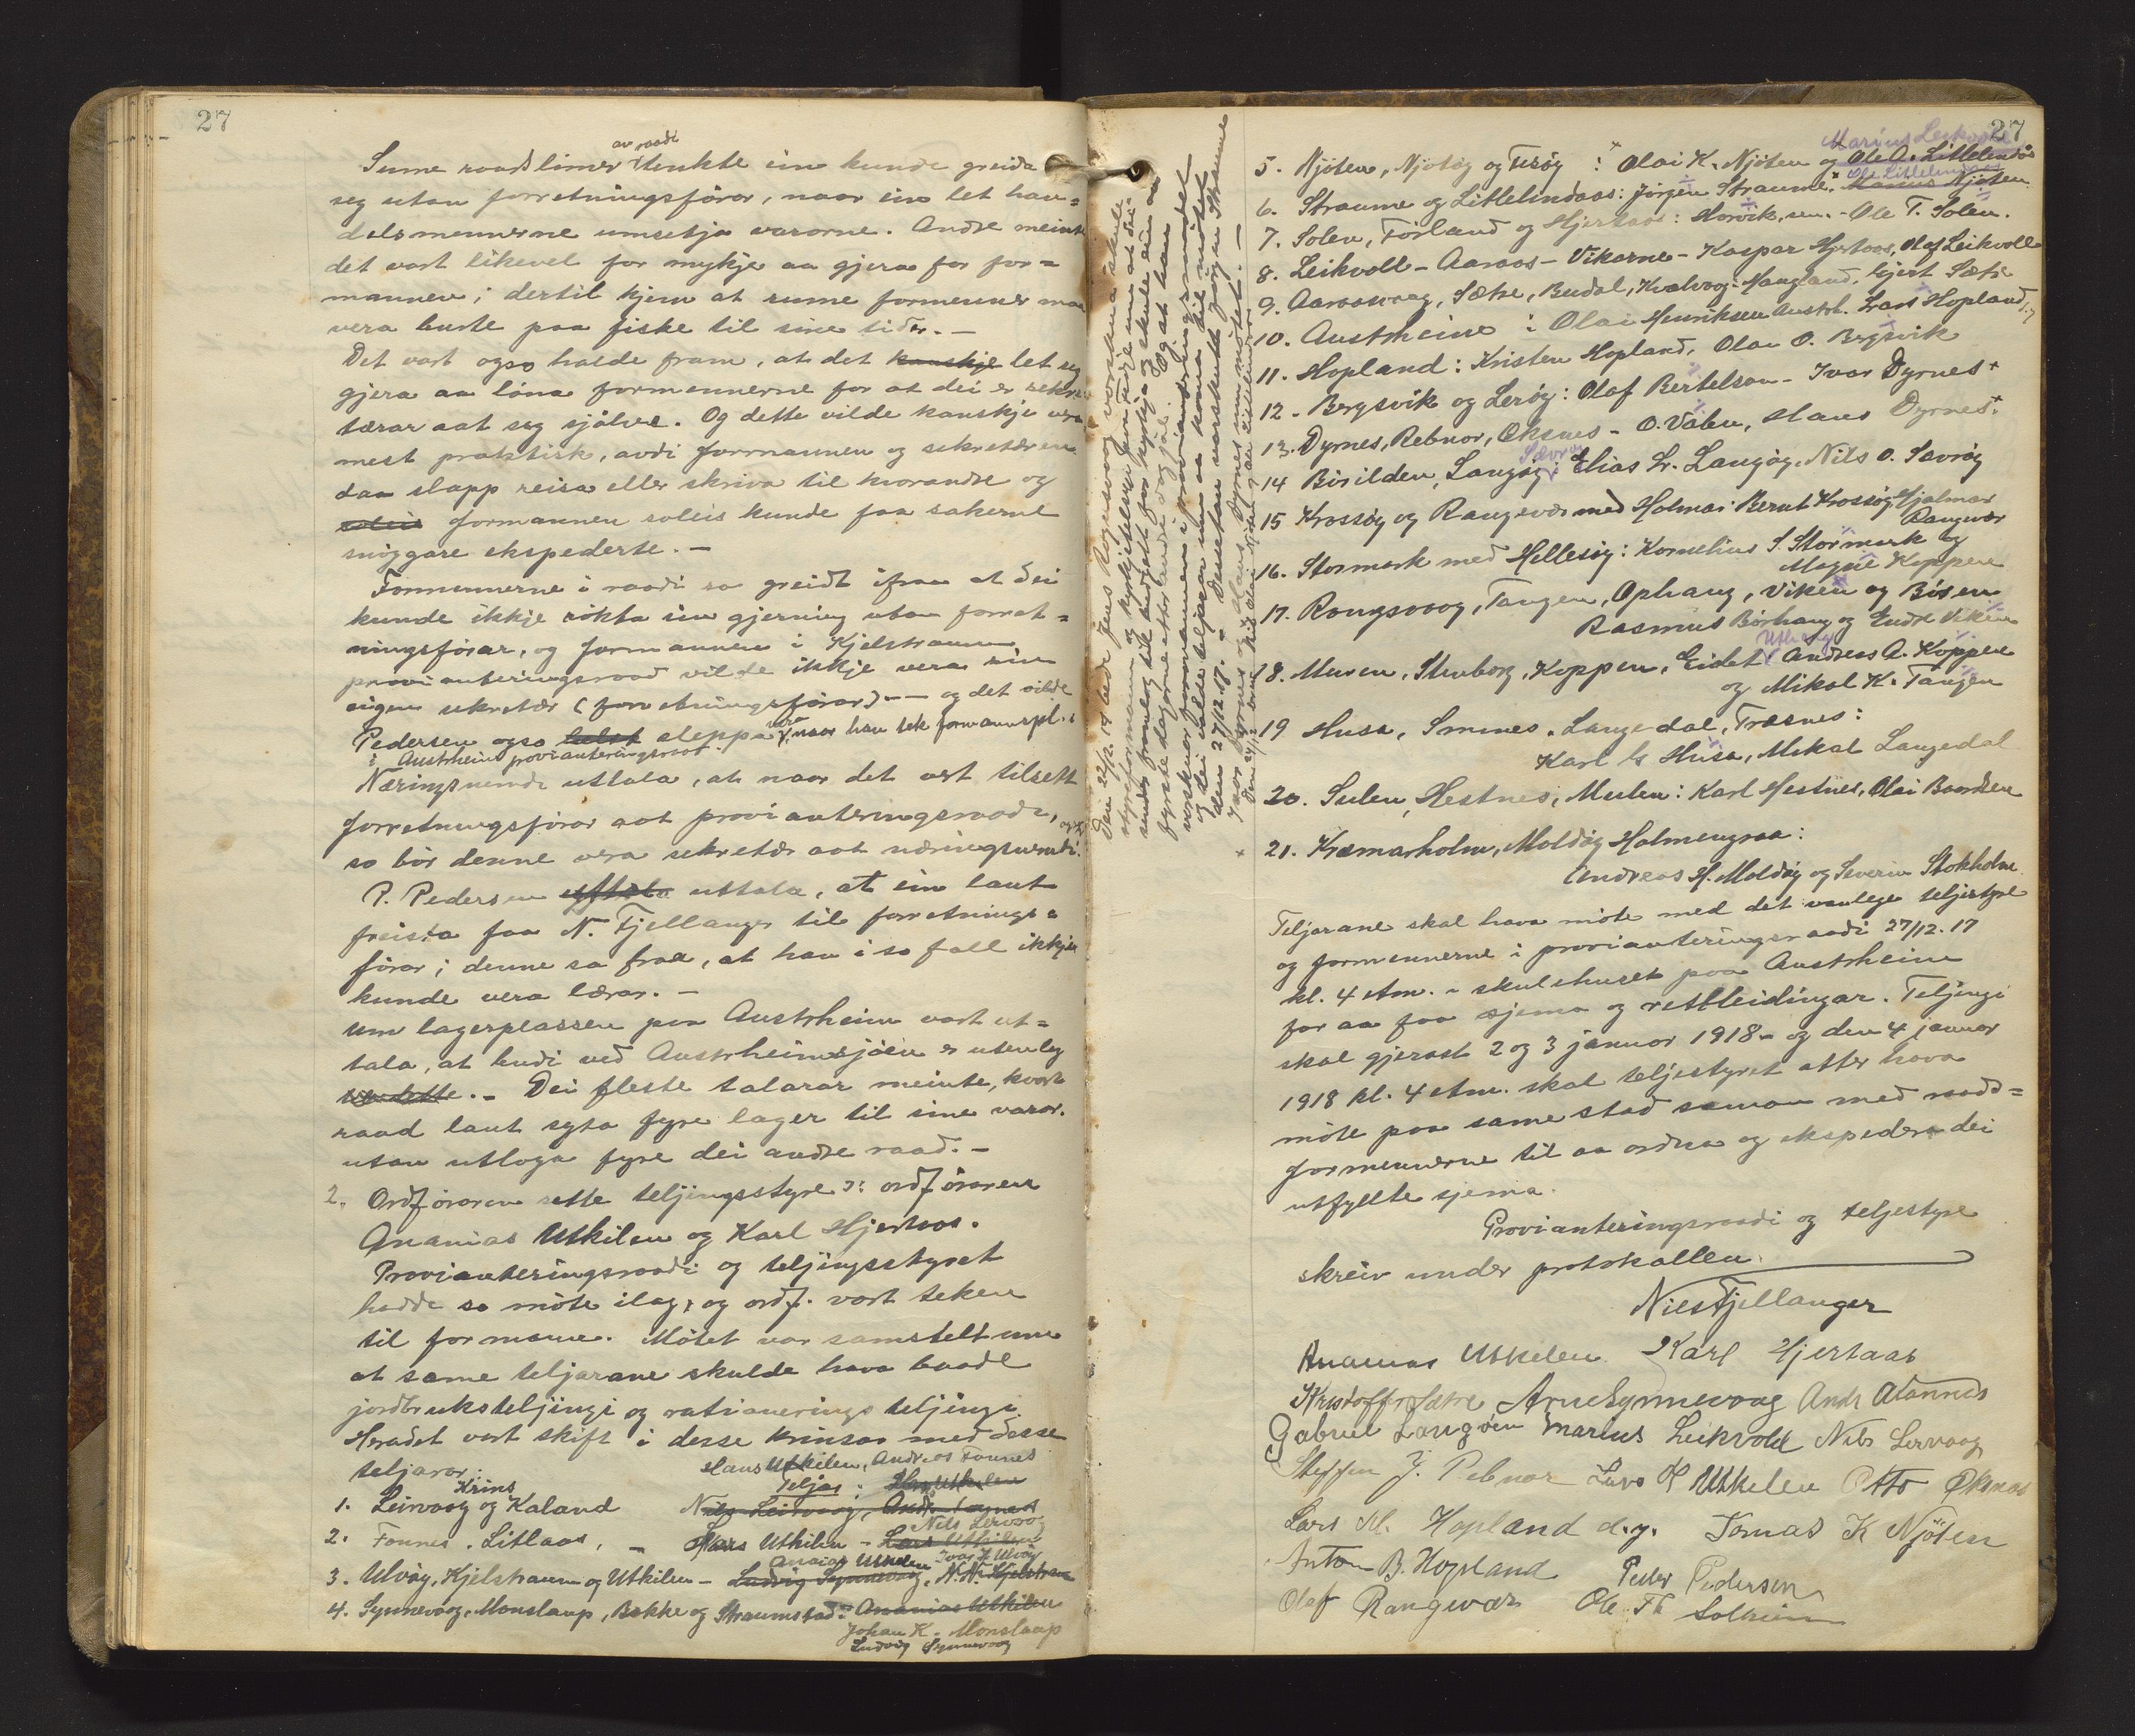 27
av raadi
Sume raadslimer tenkte ein kunde greida
seg utan forretningsförar, naar ein let han=
delsmennerne umsetja vararne. Andre meinte
det vart likevel for mykje aa gjera for for=
mannen; dertil kjem at sume formenner maa
vera burte paa fiske til sine tider. —
Det vart ogso halde fram, at det kanskje let seg
gjera aa löna formennerne for at dei er sekre
tærar aat seg sjölve. Og dette vilde kanskje vera
mest praktisk, avdi formannen og sekretæren
daa slapp reisa eller skriva til kvarandre og
soleis formannen soleis kunde faa sakerne
snöggare ekspederte. —
Formennerne i raadi sa greidt ifraa at dei
kunde ikkje rökta sin gjerning utan forret=
ningsförar, og formannen i Kjelstraumen
provianteringsraad vilde ikkje vera sin
eigen sekretær (forretningsförar) — og det vilde
Pedersen ogso helst sleppa vera, naar han tek formannspl.
i Austrheim provianteringsraad.
Næringsnemdi uttala, at naar det vert tilsett
forretningsförar aat provianteringsraade, ogso
so bör denne vera sekretær aat næringsnemdi.
P. Pedersen uttala, at ein laut
freista faa N. Fjellanger til forretnings=
förar; denne sa fraa, at han i so fall ikkje
kunde vera lærar. —
Um lagerplassen paa Austrheim vart ut=
tala, at budi ved Austrheimsjöen er utenleg
. — Dei fleste talarar meinte, kvart
raad laut syta fyre lager til sine varor.
utan utloga fyre dei andre raad. —
2. Ordföraren sette teljingsstyre ɔ: ordföraren
Ananias Utkilen og Karl Hjertaas.
Provianteringsraadi og teljingsstyret
hadde so möte ilag, og ordf. vart teken
til formann. Mötet var samstelt um
at same teljarane skulde hava baade
jordbruksteljingi og rationerings teljingi
Heradet vart skift i desse krinsar med desse
teljarar:
Hans Utkilen, Andreas Fonnes
Krins
Teljar: Hans Utkilen
1. Leirvaag og Kaland Nils Leirvaag, Andr. Fonnes
Nils Lervaag
2. Fonnes, Litlaas, – Hans Utkilen – Lars Utkilen
Ananias Utkilen Ivar J. Ulvöy
3. Ulvöy, Kjelstraum og Utkilen – Ludvig Synnevaag, N. N. Kjelstraum
4. Synnevaag, Monslaup, Bakke og Straumstad: Ananias Utkilen
Johan K. Monslaup
Ludvig Synnevaag
Den 22/12 17 bad Jens Rognsvaag
fyrste dagarne etter
verskner formannen i provianteringsraadet
og dei valde teljarar um aa koma til mötet
den 27/12.17. — Dessutan varskudt Jörgen Straume
Ivar Dyrnes og Hans Dyrnes um mötet. —
27
Marius Leikvoll
5. Njöten, Njotöy og Fesöy : Olai K. Njöten og Ole A. Littlelindaas
Ole Littlelindaas
6. Straume og Littlelindaas: Jörgen Straume, Njöten
7. Solen, Förland og Hjertaas: Horvik, sen. - Ole T. Solen.
8. Leikvoll – Aaraas – Vikarne – Kaspar Hjertaas, Olaf Leikvoll
9. Aarasvaag, Sætre, Budal, Kvalvaag: Haugland, Gjert Sætre
10. Austrheim : Olai Henriksen Austrh. Lars Hopland d.y
11. Hopland: Kristen Hopland, Olai O. Bergsvik
12. Bergsvik og Leröy: Olaf Bertelsen – Ivar Dyrnes
13. Dyrnes, Rebnor, Öksnes – O. Valen, Hans Dyrnes
Sævröy
14 Börilden, Langöy: Elias Sr. Langöy, Nils O. Sævröy
15 Krossöy og Rangevær med Holmar: Bernt Krossöy, Hjalmar
Rangvær
16. Stormark med Hellesöy: Kornelius S. Stormark og
Magne Koppen
17. Rongevaag, Tangen, Ophaug, Viken og Börn
Rasmus Börhaug og Endre Viken
Uthaug
18. Muren, Stenborg, Koppen, Eidet Andreas A. Koppen
og Mikal K. Tangen
19 Husa, Smines, Langedal, Træsnes:
Karl G. Husa, Mikal Langedal
20. Sulen, Hestnes, Mulen: Karl Hestnes, Olai Baardsen
21. Kræmarholm, Moldöy Holmengraa:
Andreas H. Moldöy og Severin Stokholm
Teljarane skal hava möte med det vanlege teljestyre
og formennerne i provianteringsraadi 27/12.17
kl. 4 etm. i skulehuset paa Austrheim
for aa faa sjema og rettleidingar. Teljingi
skal gjerast 2 og 3 januar 1918 – og den 4 januar
1918 kl. 4 etm. skal teljestyret atter hava
möte paa same stad saman med raads=
formennerne til aa ordna og ekspedera dei
utfyllte sjema.
Provianteringsraadi og teljestyre
skreiv under protokollen.
Nils Fjellanger
Ananias Utkilen Karl Hjertaas
Kristoffer Sætre Arne Synnevaag Andr Aannes
Gabriel Langöen Marius Leikvold Nils Lervaag
Steffen J. Rebnor Lars K Utkilen Otto Öksnes
Lars M. Hopland d.y. Tomas K Njöten
Anton B. Hopland Peder Pedersen
Olaf Rangevær Ole Th Solheim